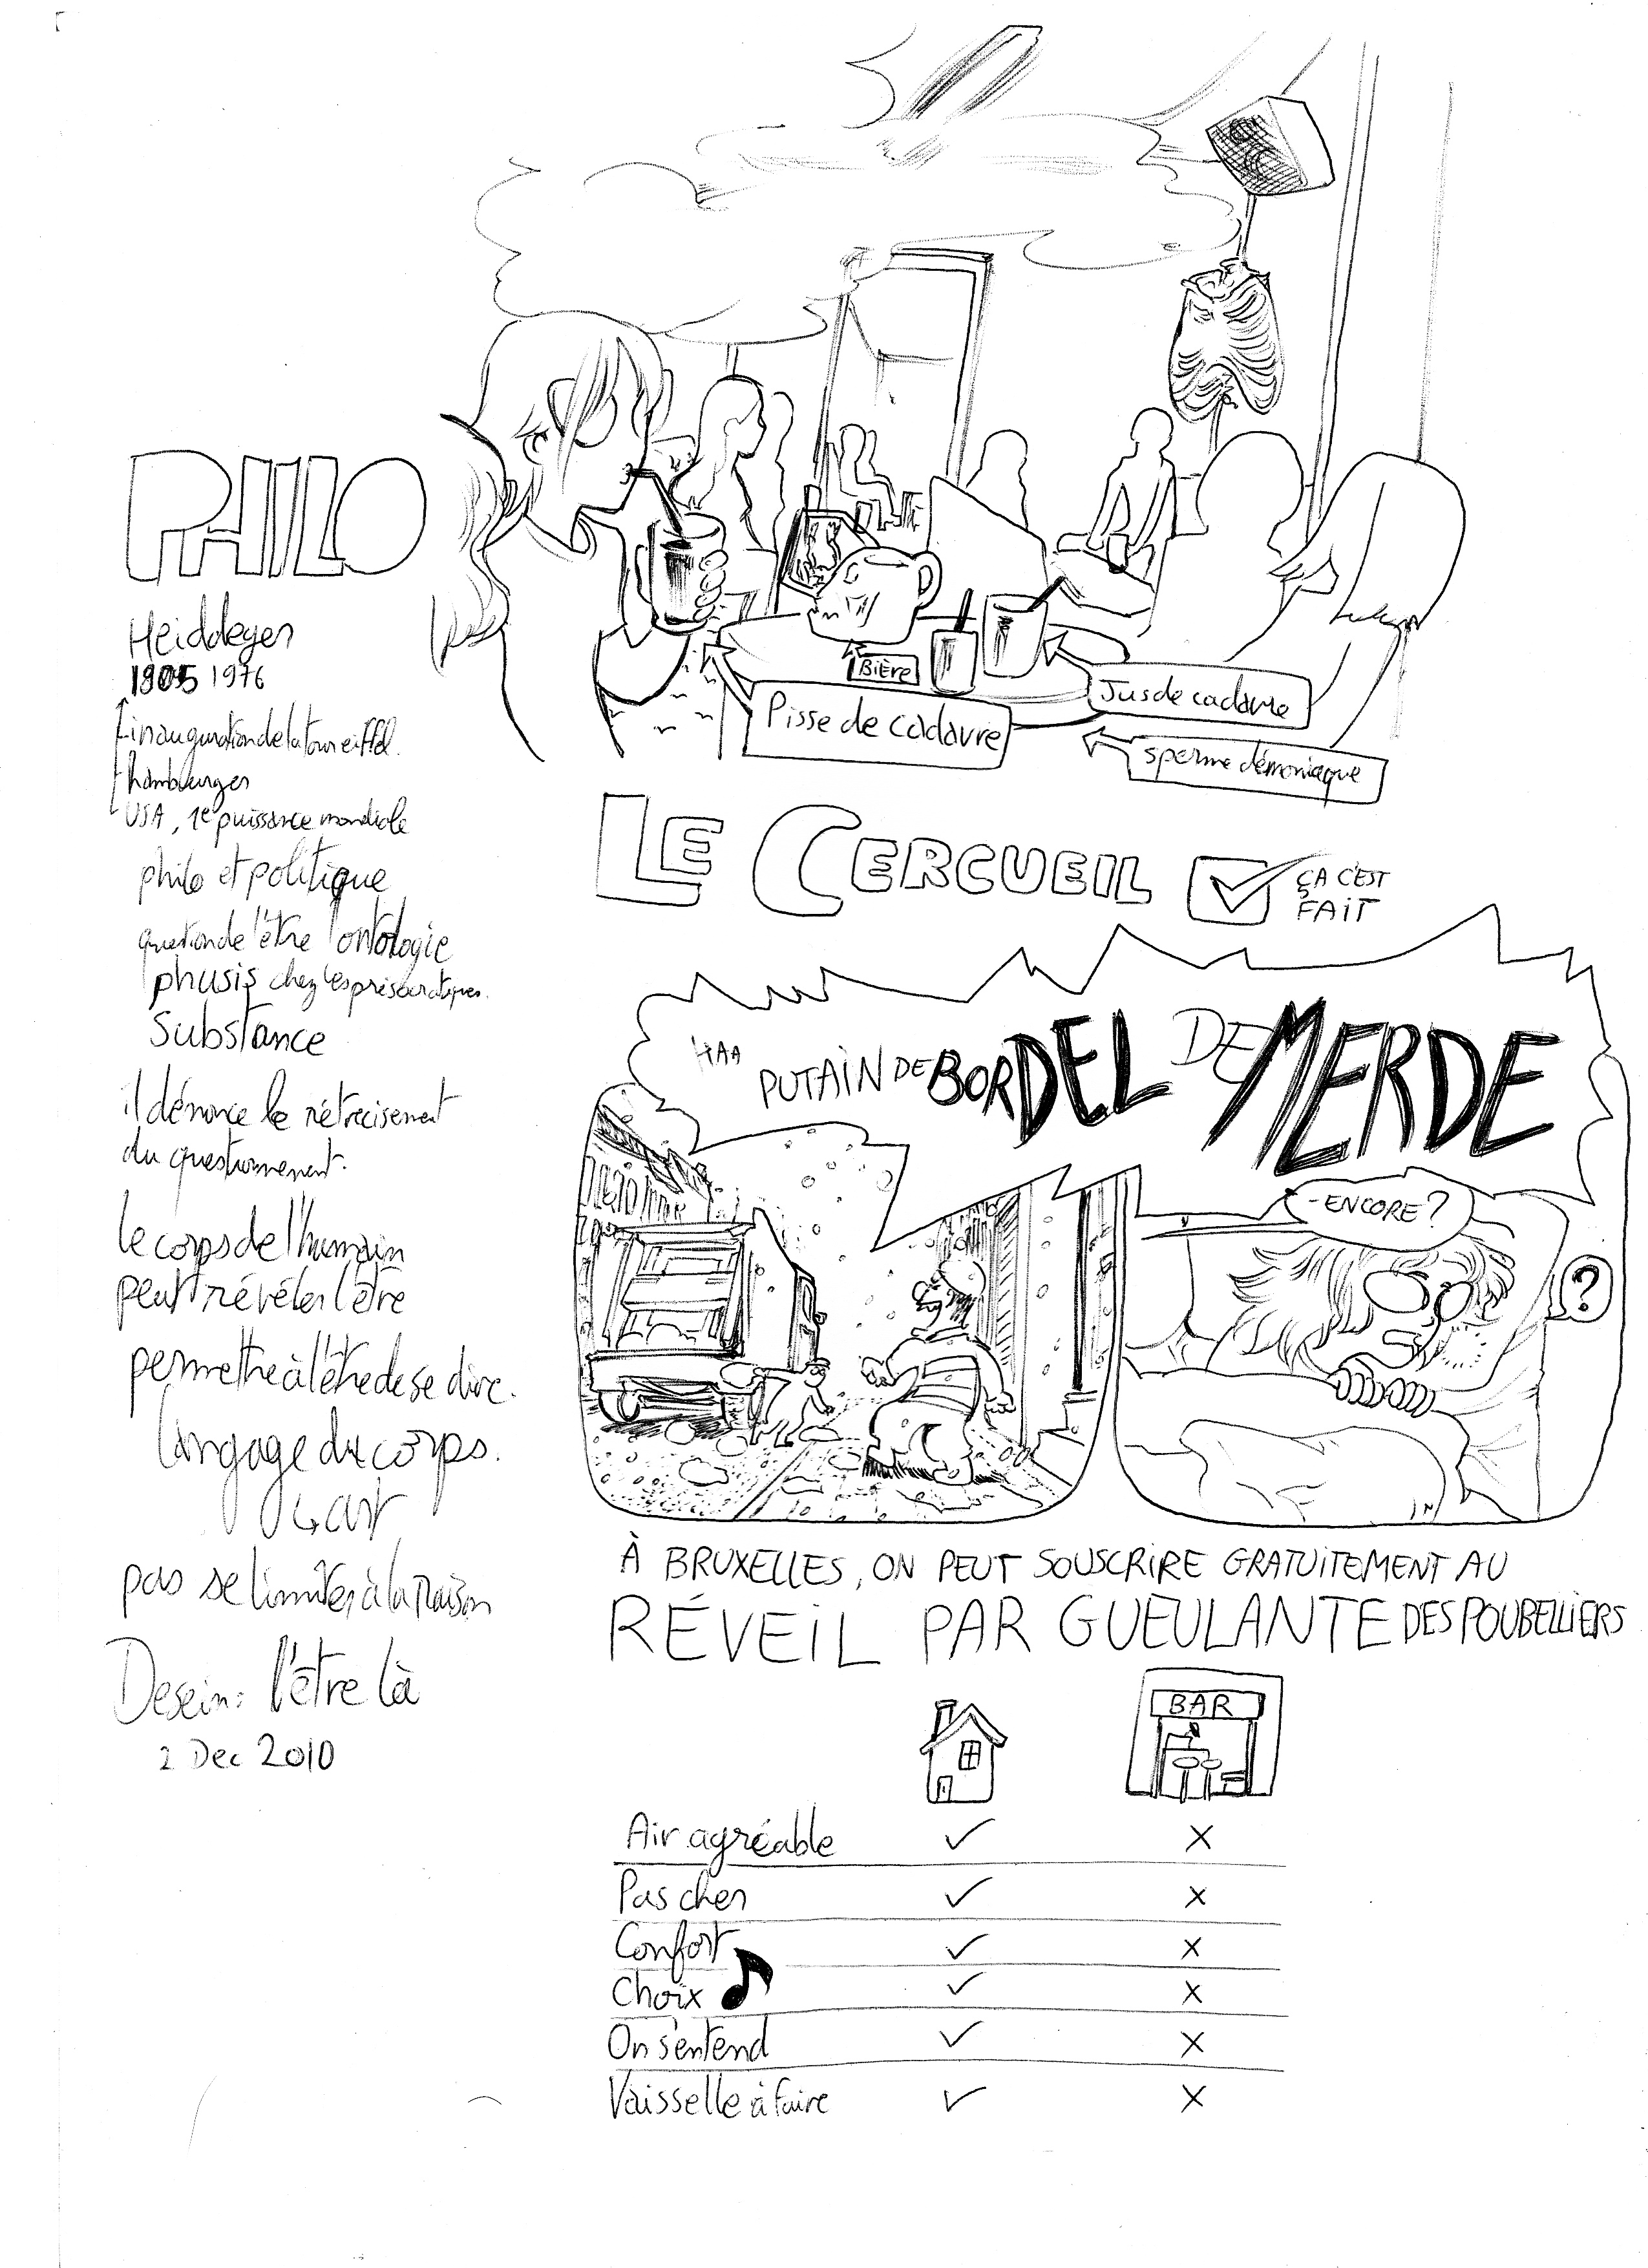 PHILO
Heidegger
1905 1976
inauguration de la tour eiffel.
hamburger
USA, 1e puissance mondiale
philo et politique
question de l'être ontologie
phusis chez les présocratiques.
Substance
il dénonce le rétrecisement
du questionnement.
le corps de l'humain
peut révéler l'être
permettre à l'être de se dire.
langage du corps.
↳ art
pas se limiter à la raison
Desein: l'être là
2 Dec 2010
Bière
Pisse de cadavre
Jus de cadavre
sperme démoniaque
LE CERCUEIL
ÇA C'EST
FAIT
HAA
PUTAIN DE BORDEL DE MERDE
- ENCORE ?
?
À BRUXELLES, ON PEUT SOUSCRIRE GRATUITEMENT AU
RÉVEIL PAR GUEULANTE DES POUBELLIERS
BAR
Air agréable ✓ X
Pas cher ✓ X
Confort ✓ X
Choix ♪ ✓ X
On s'entend ✓ X
Vaisselle à faire ✓ X